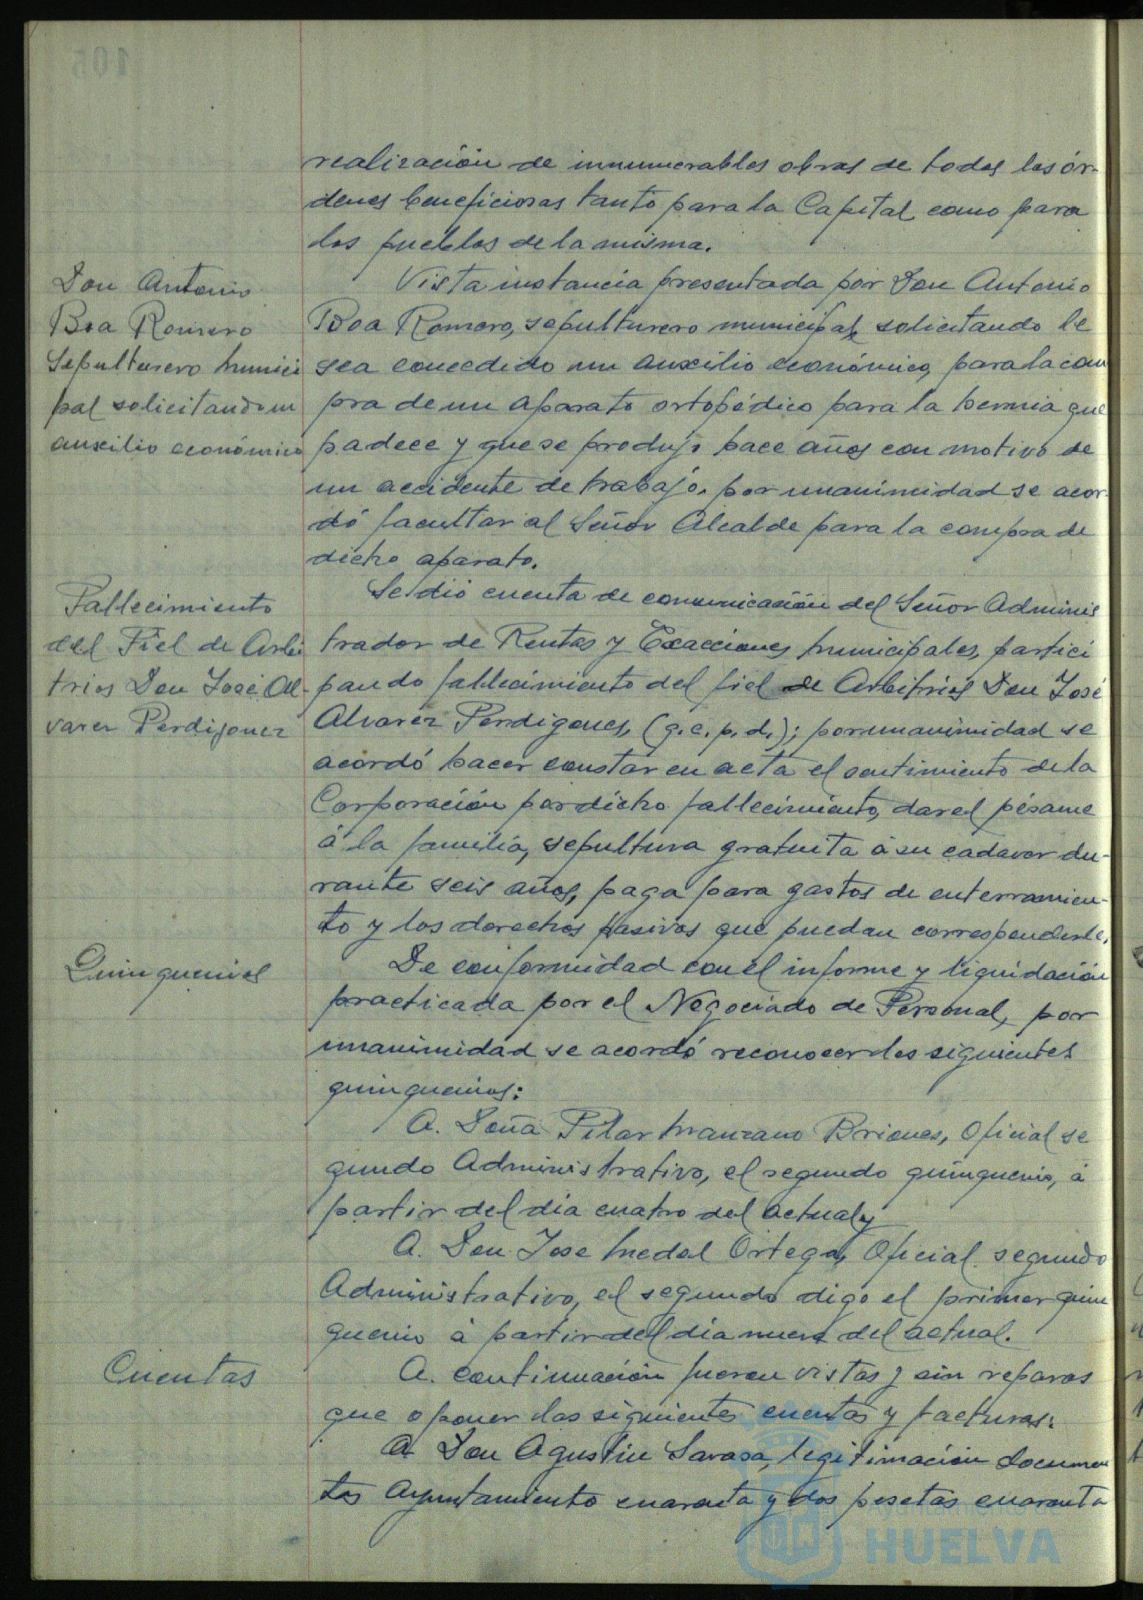 realización de innumerables obras de todos los ór-
denes beneficiosas tanto para la Capital como para
los pueblos de la misma.
Don Antonio
Boa Romero
Sepulturero munici
pal solicitando un
auxilio económico
Vista instancia presentada por Don Antonio
Boa Romero, sepulturero municipal, solicitando le
sea concedido un auxilio económico, para la com
pra de un aparato ortopédico para la hernia que
padece y que se produjo hace años con motivo de
un accidente de trabajo, por unanimidad se acor-
dó facultar al Señor Alcalde para la compra de
dicho aparato.
Fallecimiento
del Fiel de Arbi
trios Don José Al-
varez Perdigonez
Se dió cuenta de comunicación del Señor Adminis
trador de Rentas y Exacciones municipales, partici
pando fallecimiento del fiel de Arbitrios Don José
Alvarez Perdigones, (q.e.p.d.); por unanimidad se
acordó hacer constar en acta el sentimiento de la
Corporación por dicho fallecimiento, dar el pésame
á la familia, sepultura gratuita á su cadaver du-
rante seis años, paga para gastos de enterramien-
to y los derechos pasivos que puedan corresponderle.
Quinquenios
De conformidad con el informe y liquidación
practicada por el Negociado de Personal, por
unanimidad se acordó reconocer los siguientes
quinquenios:
A. Doña Pilar Manzano Briones, Oficial se
gundo Administrativo, el segundo quinquenio, á
partir del día cuatro del actual y
A. Don Jose Medel Ortega, Oficial segundo
Administrativo, el segundo digo el primer quin
quenio á partir del día nueve del actual.
Cuentas
A. continuación fueron vistas y sin reparos
que oponer las siguientes cuentas y facturas:
A Don Agustin Sarasa, legitimación documen
tos Ayuntamiento cuarenta y dos pesetas cuarenta
Ayuntamiento de
HUELVA
105